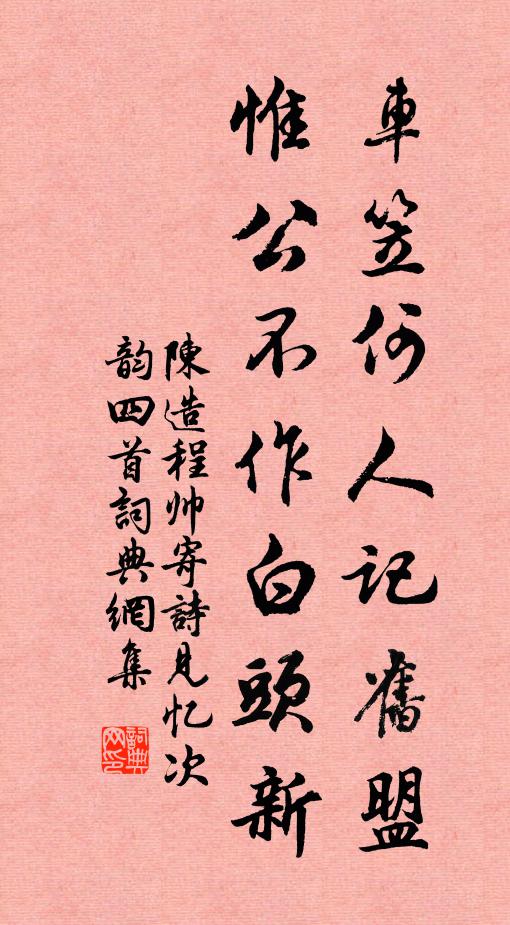 車笠何人記舊盟
惟公不作白頭新
陳造程帅寄詩見忆次
韵四首詞典網集
詞典
网印